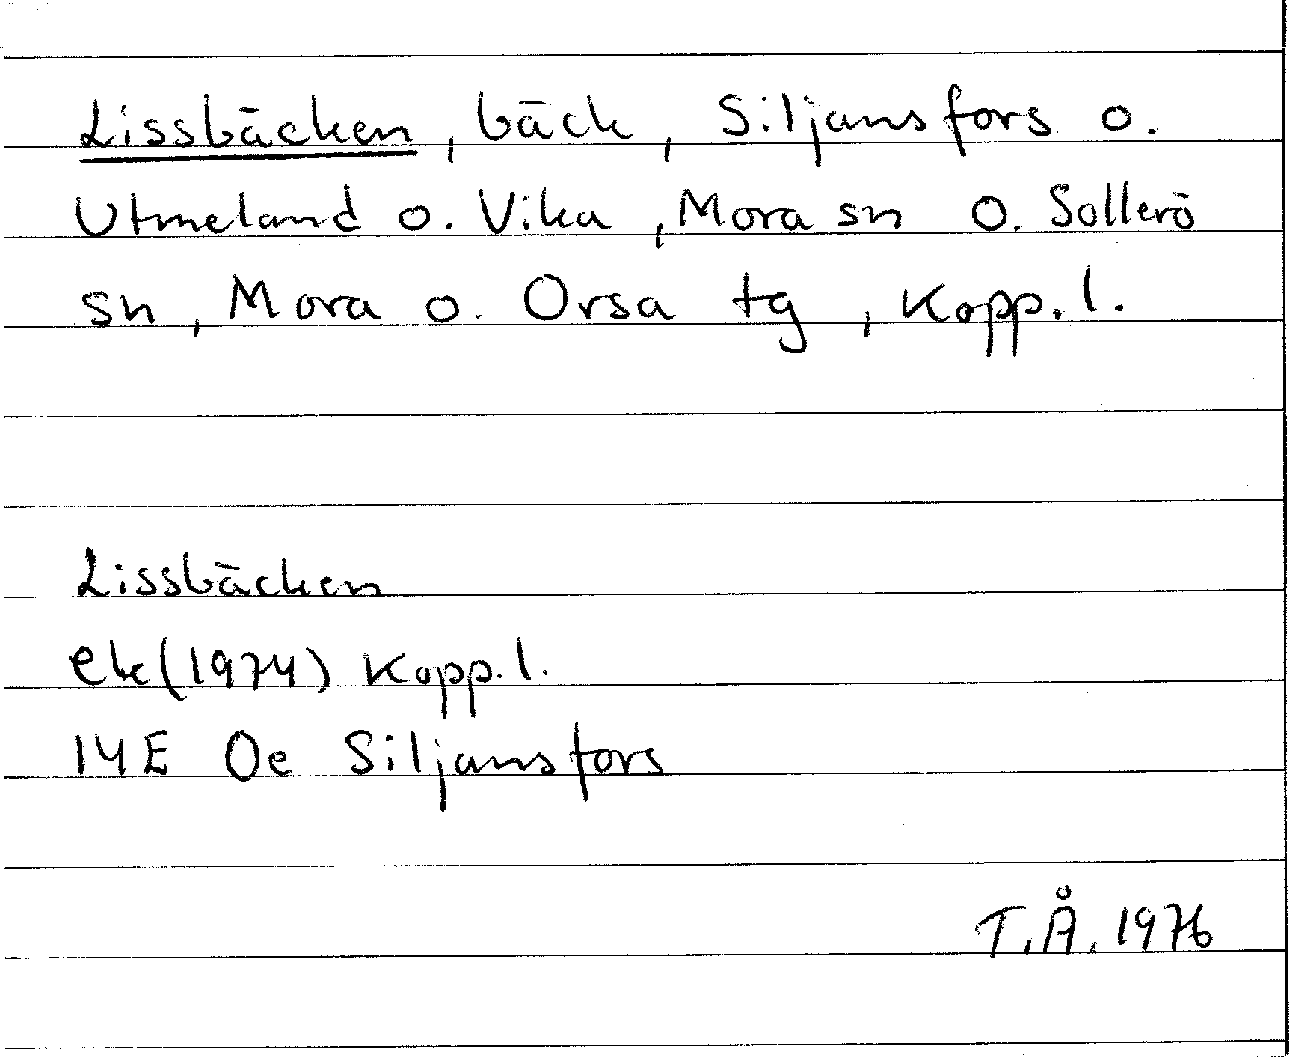 Lissbäcken, bäck, Siljansfors o.
Utmeland o. Vika, Mora sn o. Sollerö
sn, Mora o. Orsa tg, Kopp. l.
Lissbäcken
ek (1974) Kopp. l.
14E Oe Siljansfors
T.Å. 1976